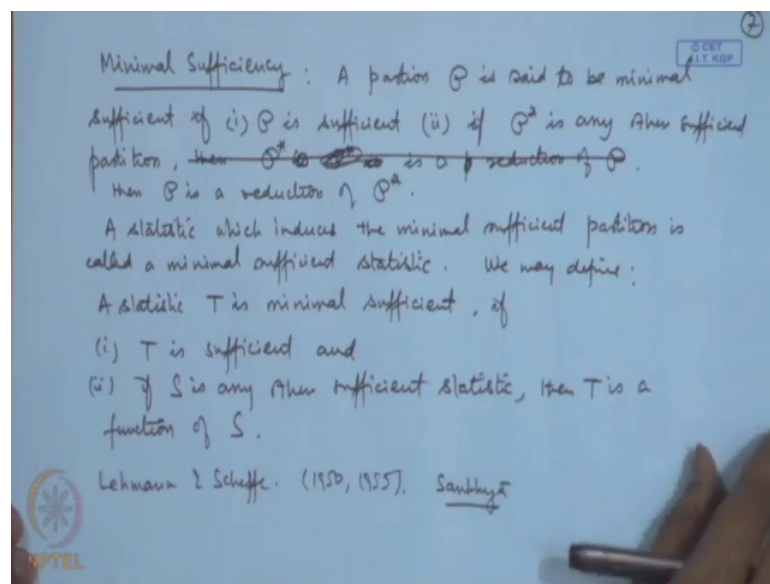 7
© CET
I.I.T. KGP
Minimal Sufficiency : A partion P is said to be minimal
sufficient if (i) P is sufficient (ii) if P* is any other sufficient
partition, then P* is a reduction of P.
then P is a reduction of P*.
A statistic which induces the minimal sufficient partition is
called a minimal sufficient statistic. We may define :
A statistic T is minimal sufficient, if
(i) T is sufficient and
(ii) if S is any other sufficient statistic, then T is a
function of S.
Lehmann & Scheffe. (1950, 1955). Sankhyā
NPTEL